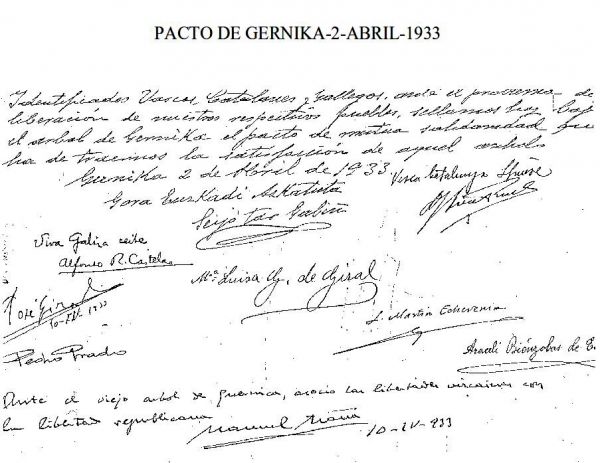 PACTO DE GERNIKA-2-ABRIL-1933
Identificados Vascos, Catalanes y Gallegos, ante el problema de
liberación de nuestros respectivos pueblos, sellamos hoy bajo
el arbol de Gernika el pacto de mutua solidaridad que
ha de traernos la satisfacción de aquel anhelo
Gernika 2 de Abril de 1933
Gora Euzkadi Azkatuta
Visca Catalunya lliure
Viva Galiza ceibe
Alfonso R. Castelao
Mª Luisa G. de Giral
José Giral
10-IV-1933
J. Martín Echeverría
Pedro Prado
Araceli Biénzobas de
Ante el viejo arbol de Guernica, asocio las libertades vizcainas con
la libertad republicana
Manuel Azaña
10-IV-933